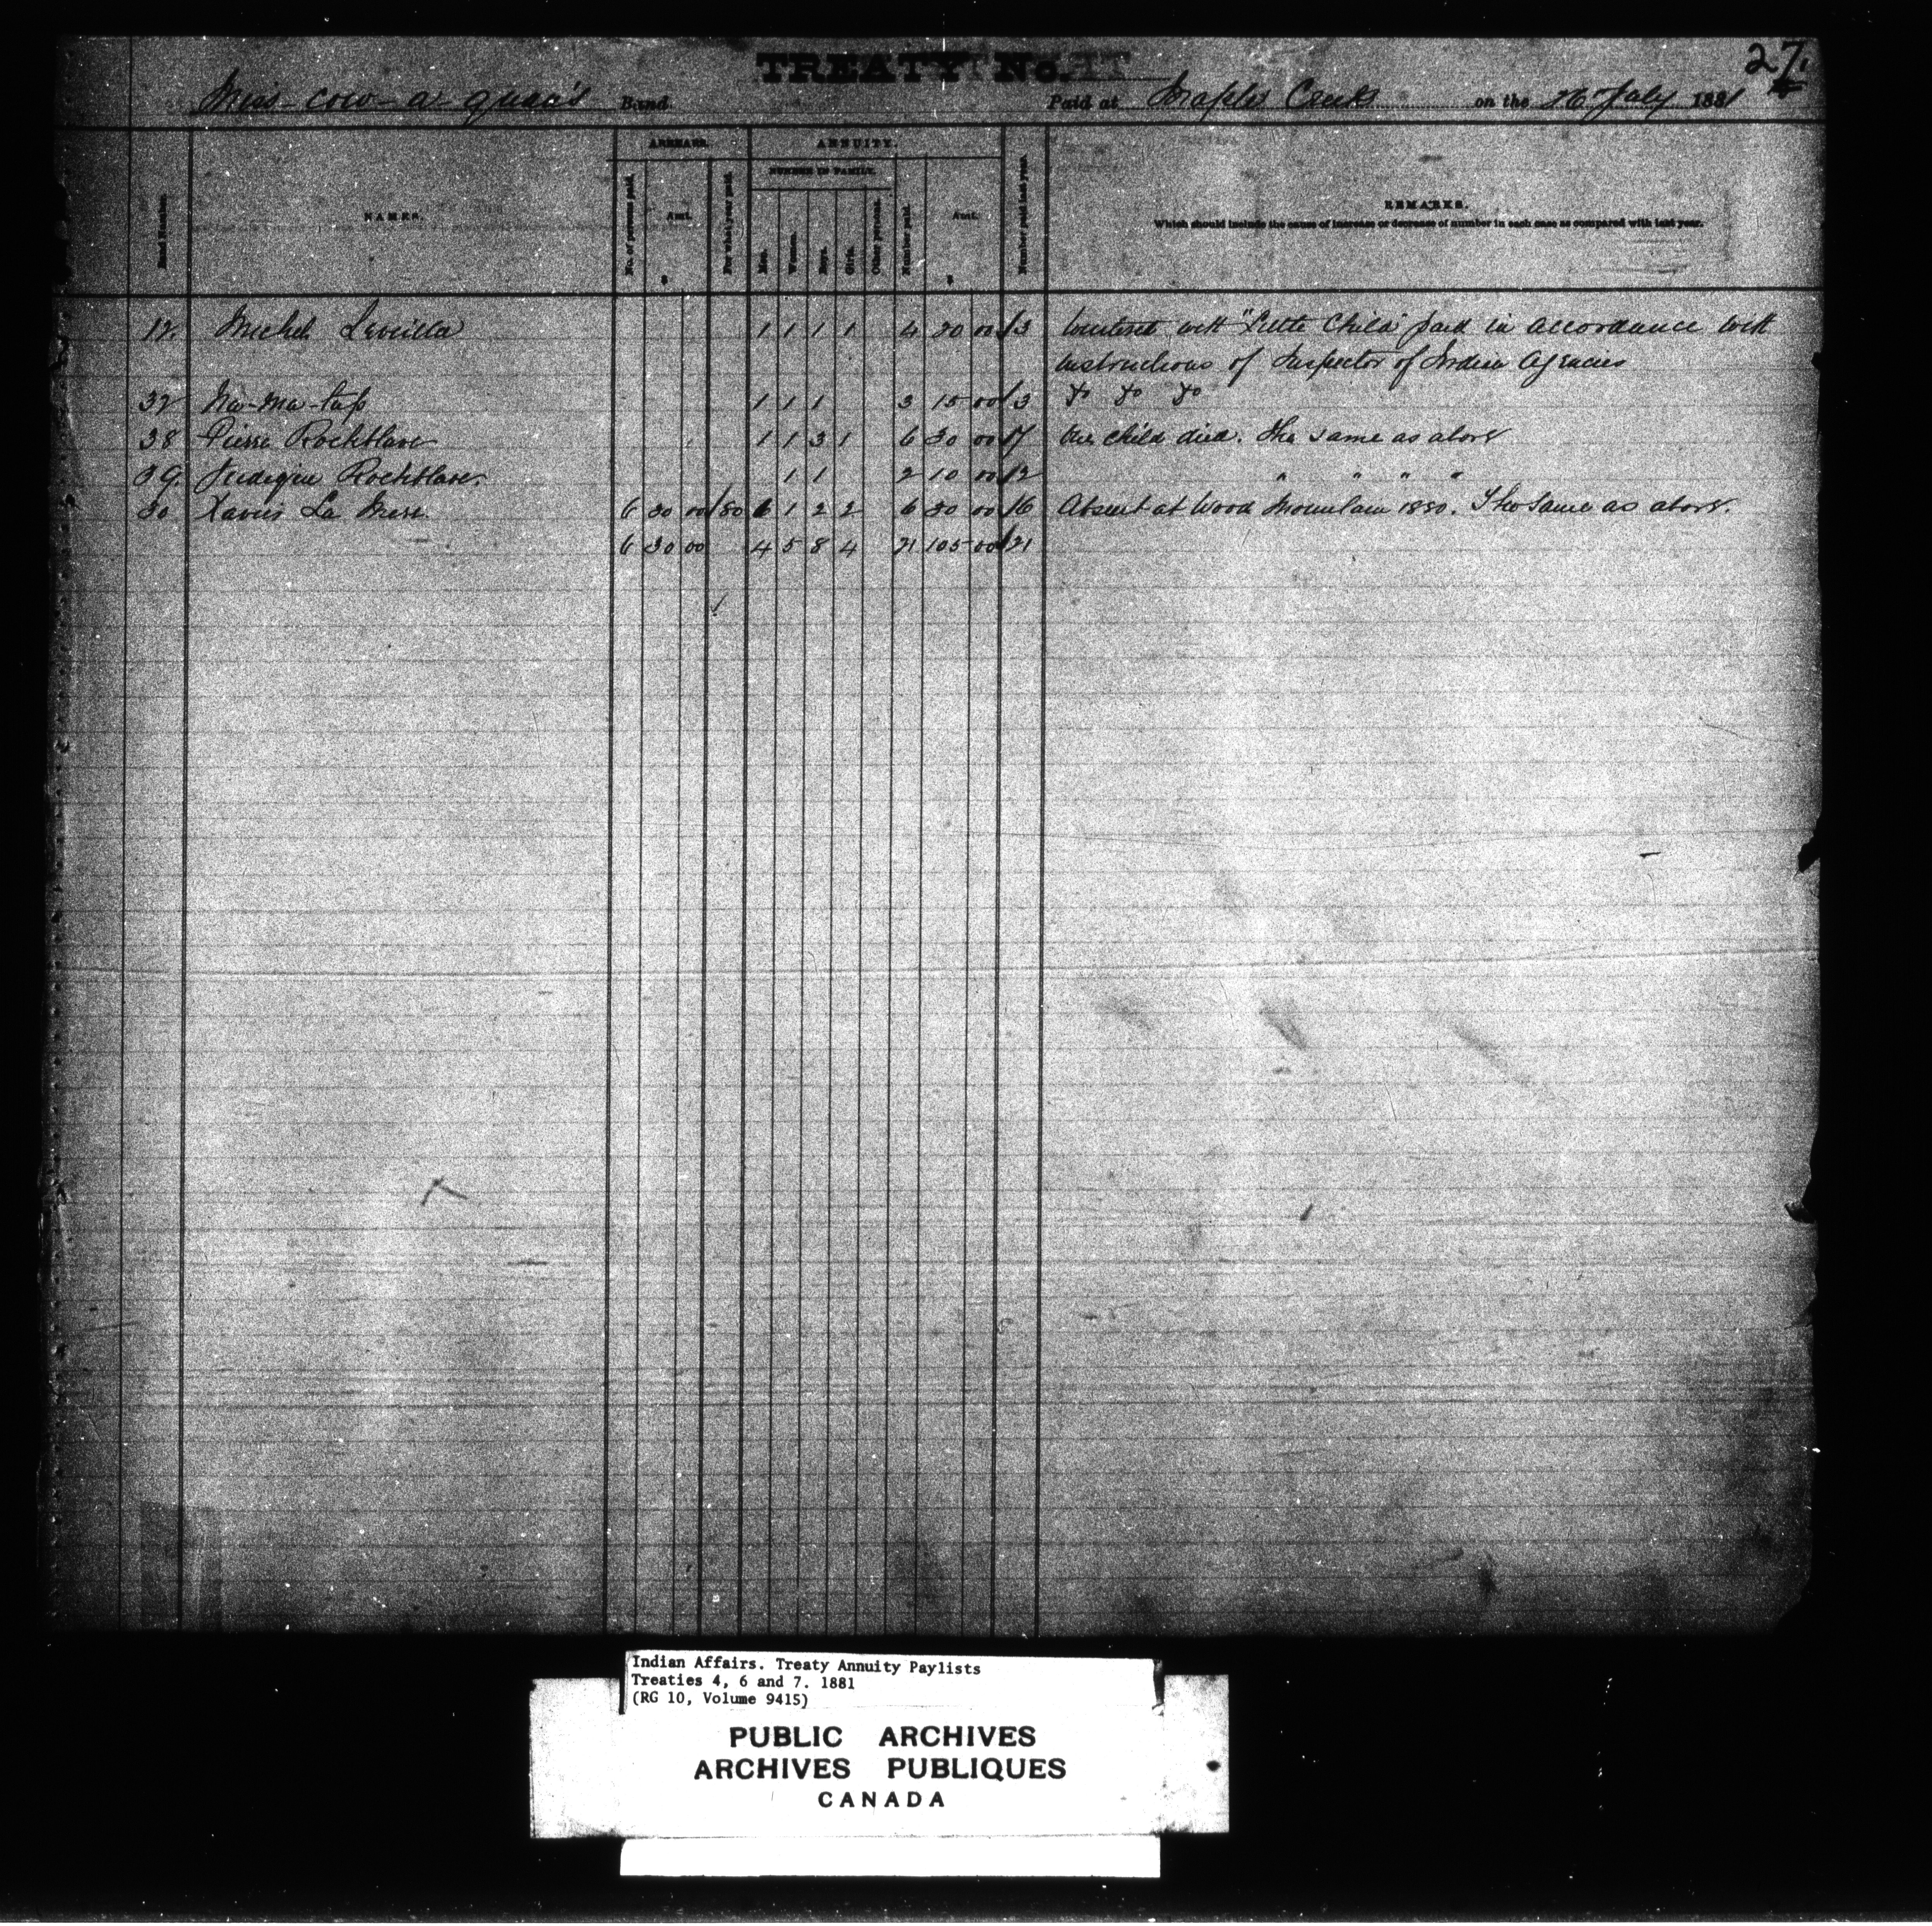 27.
TREATY No.
Miss-cow-a-quac's Band. Paid at Maple Creek on the 26 July 1881
ARREARS. ANNUITY.
NUMBER IN FAMILY.
NAMES. No. of persons paid. Amt. $ For what year paid. Men. Women. Boys. Girls. Other persons. Number paid. Amt. $ Number paid last year. REMARKS.
Which should include the cause of increase or decrease of number in each case as compared with last year.
12. Michel 1 1 1 1 4 20 00 3 with "Little Child" paid in accordance with
instructions of Inspector of Indian Agencies
32 Na-ma-tap 1 1 1 3 15 00 3 Do Do Do
38 Pierre Rocheblave 1 1 3 1 6 30 00 7 One child died. The same as above
39. Rocheblave. 1 1 2 10 00 2 " " " "
30 Xavier La 6 30 00 80 1 1 2 2 6 30 00 6 Absent at Wood Mountain 1880. The same as above.
6 30 00 4 5 8 4 21 105 00 21
Indian Affairs. Treaty Annuity Paylists
Treaties 4, 6 and 7. 1881
(RG 10, Volume 9415)
PUBLIC ARCHIVES
ARCHIVES PUBLIQUES
CANADA